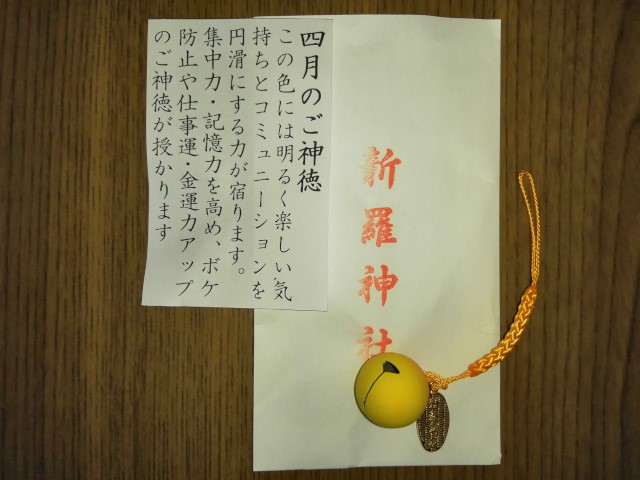 四月のご神徳
この色には明るく楽しい気
持ちとコミュニーションを
円滑にする力が宿ります。
集中力・記憶力を高め、ボケ
防止や仕事運・金運力アップ
のご神徳が授かります
新羅神社